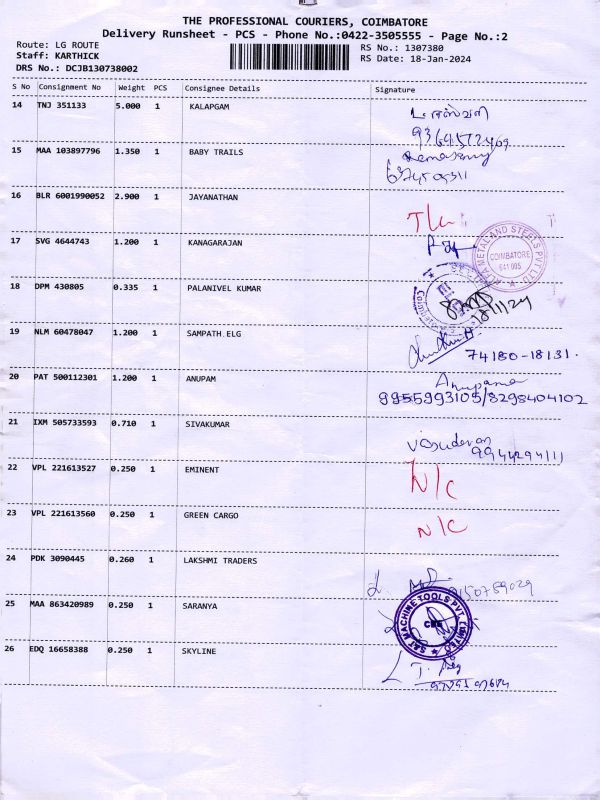 THE PROFESSIONAL COURIERS, COIMBATORE
Delivery Runsheet - PCS - Phone No.:0422-3505555 - Page No.:2
Route: LG ROUTE
RS No.: 1307380
Staff: KARTHICK
RS Date: 18-Jan-2024
DRS No.: DCJB130738002
S No Consignment No Weight PCS Consignee Details Signature
14 TNJ 351133 5.000 1 KALAPGAM
15 MAA 103897796 1.350 1 BABY TRAILS
16 BLR 6001990052 2.900 1 JAYANATHAN
17 SVG 4644743 1.200 1 KANAGARAJAN
COIMBATORE
641 005
18 DPM 430805 0.335 1 PALANIVEL KUMAR
18/1/24
19 NLM 60478047 1.200 1 SAMPATH ELG
74180-18131.
20 PAT 500112301 1.200 1 ANUPAM
Anupama
9955993105/8298404102
21 IXM 505733593 0.710 1 SIVAKUMAR
Vasudevan
9944294111
22 VPL 221613527 0.250 1 EMINENT
N/C
23 VPL 221613560 0.250 1 GREEN CARGO
N/C
24 PDK 3090445 0.260 1 LAKSHMI TRADERS
9150759029
25 MAA 863420989 0.250 1 SARANYA
SAT MACHINE TOOLS PVT. LIMITED
CBE
26 EDQ 16658388 0.250 1 SKYLINE